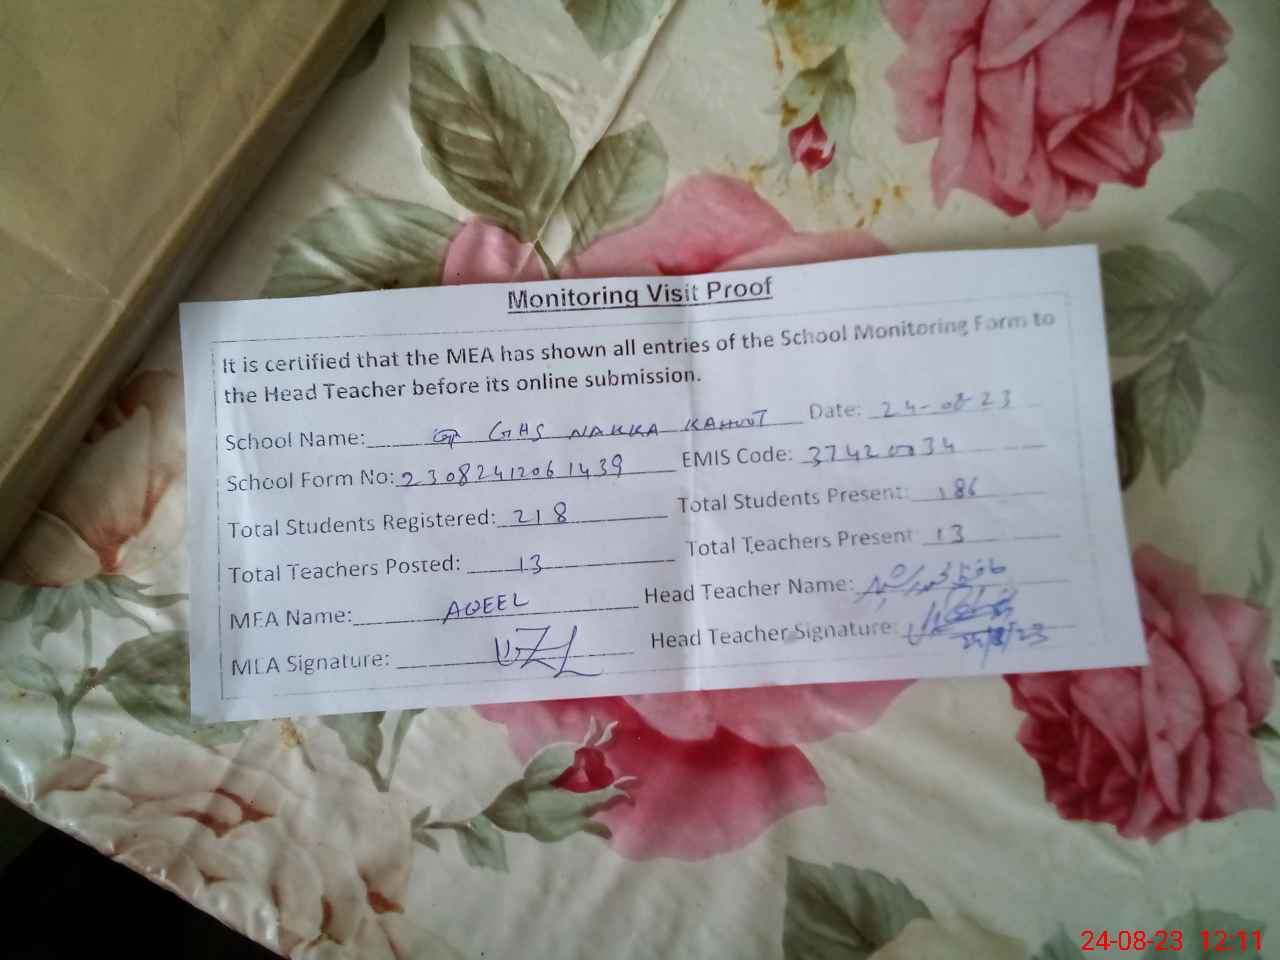 Monitoring Visit Proof
It is certified that the MEA has shown all entries of the School Monitoring Form to
the Head Teacher before its online submission.
School Name: GHS NAKKA KAHUUT Date: 24-08-23
School Form No: 23082412061439 EMIS Code: 37420034
Total Students Registered: 218 Total Students Present: 186
Total Teachers Posted: 13 Total Teachers Present 13
MEA Name: AQEEL Head Teacher Name:
MEA Signature: Head Teacher Signature:
24-08-23 12:11